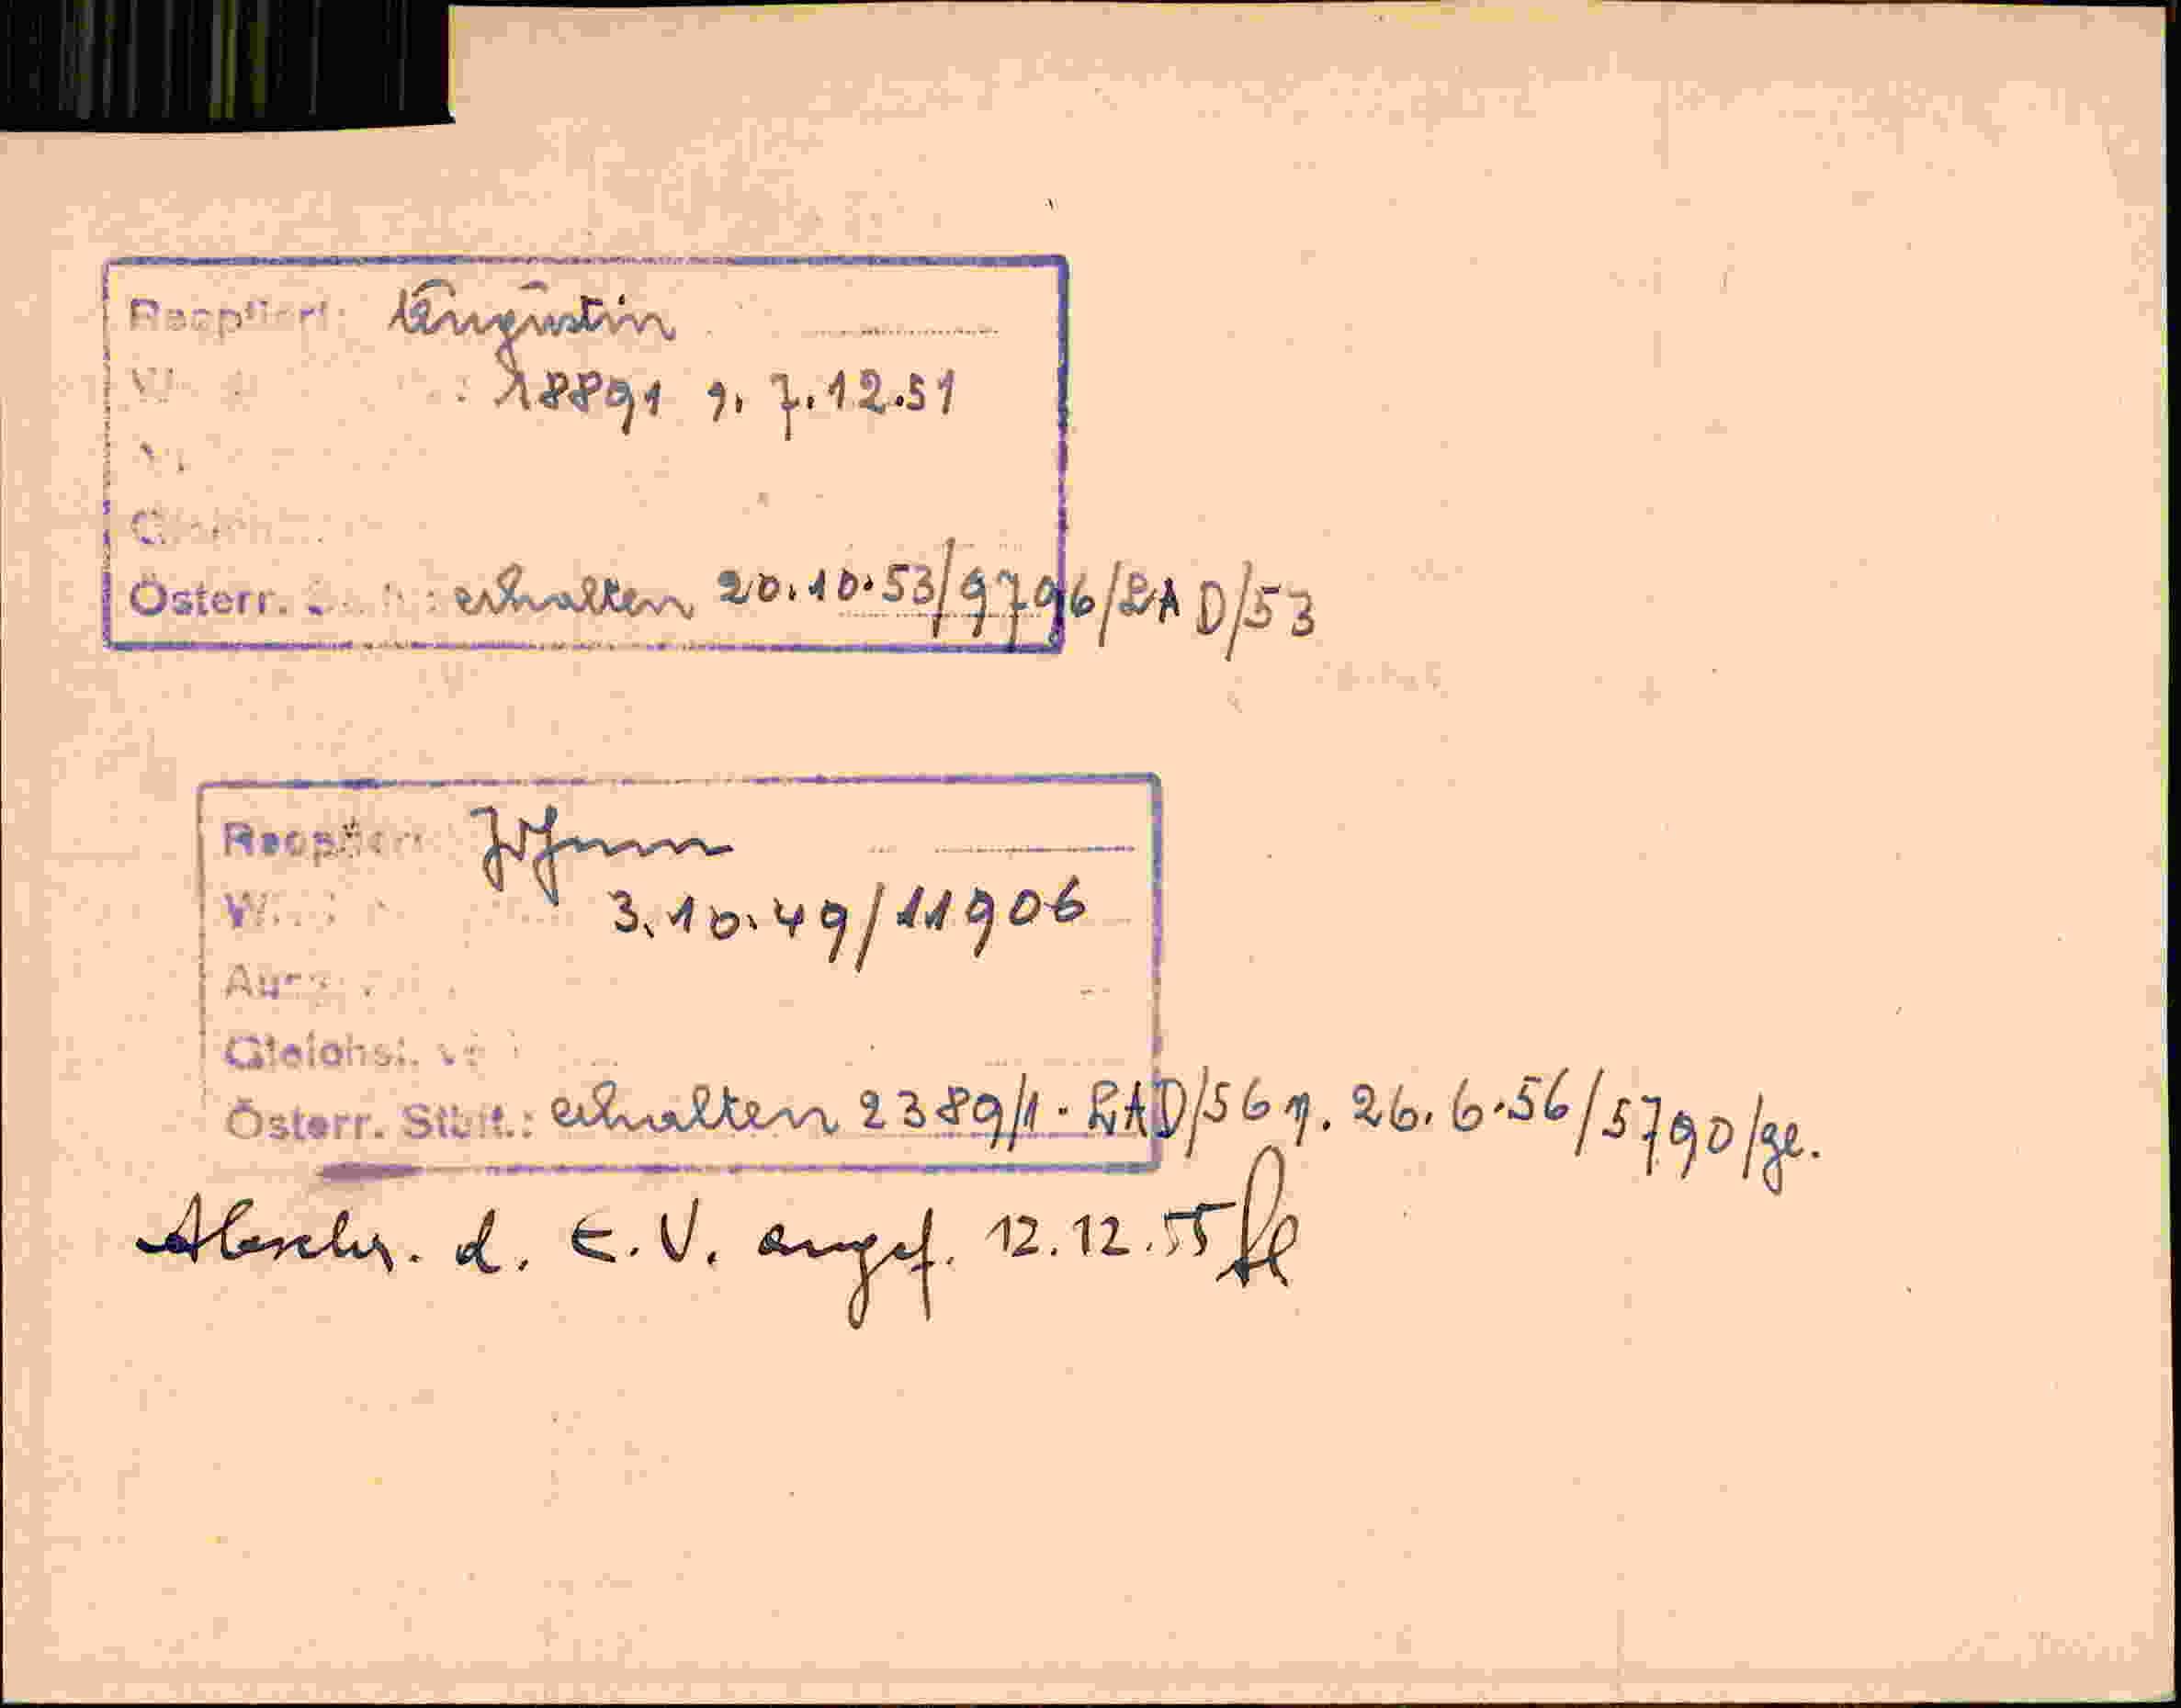 Reoptiert: Augustin
18891 v. 7.12.51
Österr. erhalten 20.10.53/9796/LAD/53
Reoptiert Johann
3.10.49/11906
Gleichst.
Österr. Stbft.: erhalten 2389/1-LAD/56 v. 26.6.56/5790/ge.
Abschr. d. E.V. angef. 12.12.55